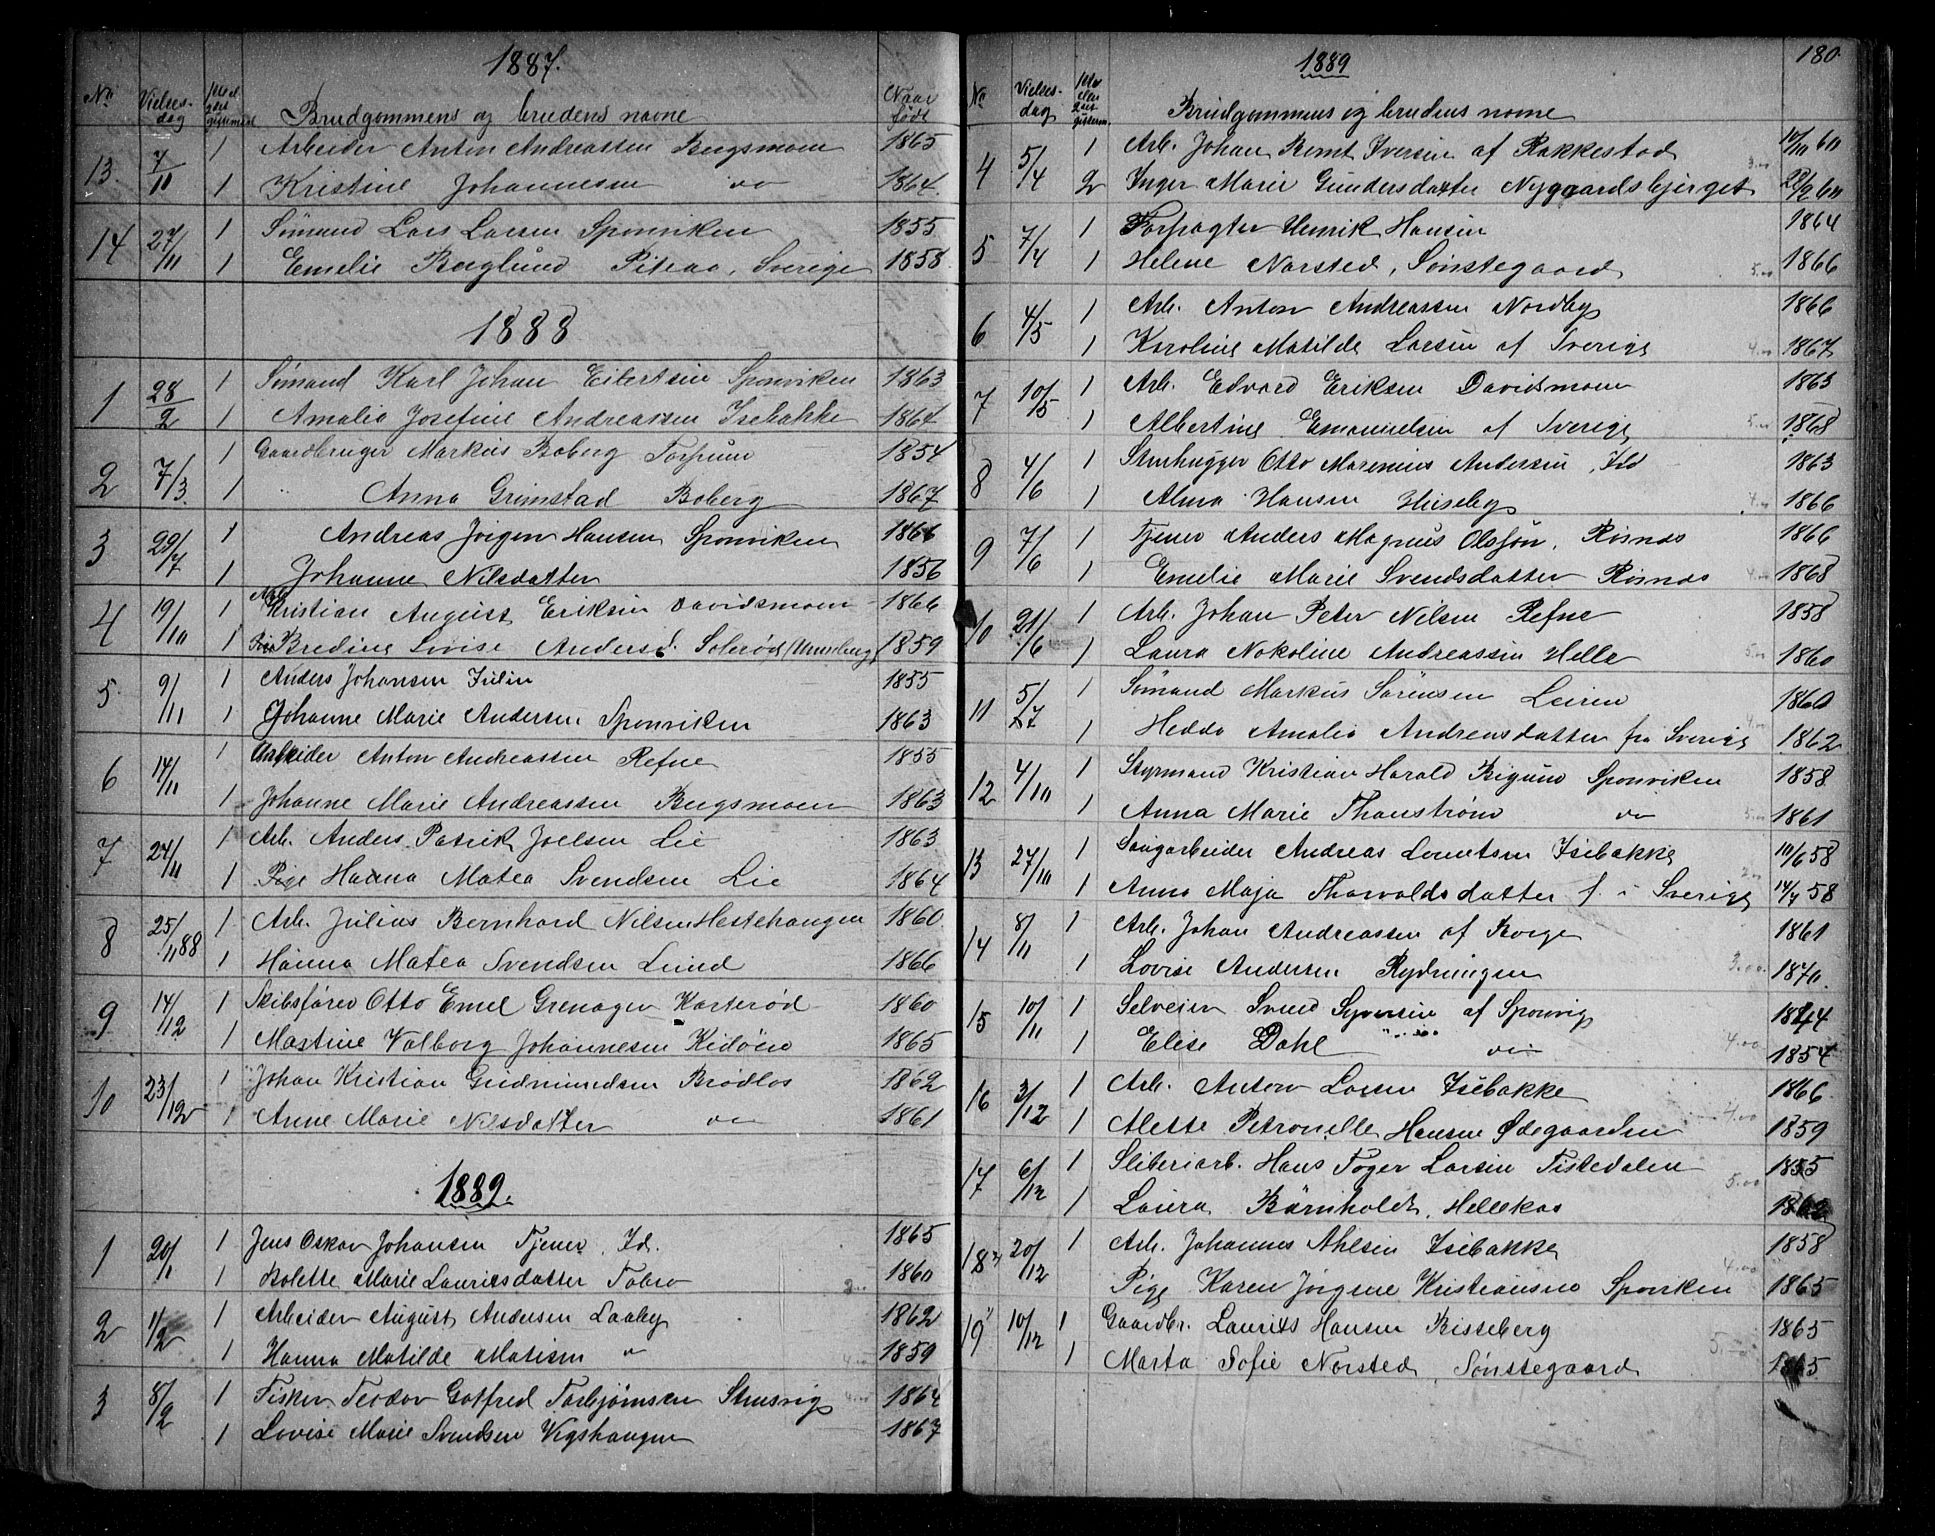 1887.
No Vielses-dag Brudgommens og brudens navne Naar født
13. 7/11 1 Arbeider Anton Andreassen Bergsmoen 1865
1 Kristine Johannesen do 1864.
14 27/11 1 Sømand Lars Larsen Sponviken 1855
1 Emelie Berglund Piteaa, Sverige 1858
1888
1 28/2 1 Sømand Karl Johan Eilertsen Sponviken 1863
1 Amalia Josefine Andreassen Isebakke 1864
2 7/3 1 Gaardbruger Markus Boberg Torpum 1854
1 " Anna Grimstad Boberg 1867
3 29/7 1 Andreas Jørgen Hansen Sponviken 1866
1 Johanne Nilsdatter 1856
4 19/10 1 Arb. Kristian August Eriksen Davidsmoen 1866
1 Bredine Lovise Andersd. Solerød 1859
5. 9/11 1 Anders Johansen Julin 1855
1 Johanne Marie Andersen Sponviken 1863
6 14/11 1 Arbeider Anton Andreassen Refne 1855
1 Johanne Marie Andreassen Bergsmoen 1863
7 24/11 1 Arb. Anders Patrik Joelsen Lie 1863
1 Pige Hanna Matea Svendsen Lie 1864
8 25/11 88 1 Arb. Julius Bernhard Nilsen Hestehaugen 1860.
1 Hanna Matea Svendsen Lund 1866
9 14/12 1 Skibsfører Otto Emel Grenager Karterød 1860
1 Mastine Valborg Johannesen Kidöen 1865
10 23/12 1 Johan Kristian Gudmundsen Brødløs 1862
1 Anne Marie Nilsdatter do 1861
1889.
1 20/1 1 Jens Oskar Johansen Tjener, Id. 1865
1 Bolette Marie Lauritsdatter Tobro 1860
2 1/2 1 Arbeider August Andersen Laaby 1862
1 Hanna Matilde Matisen " 1859
3 8/2 1 Fisker Teodor Gotfred Torbjørnsen Stensvig 1864
1 Lovise Marie Svendsen Vegshaugen 1867
180.
1889
No Vielses-dag Brudgommens og brudens navne
4 5/4 1 Arb. Johan Bernt Iversen af Rakkestad 10/10 60
2 Inger Marie Gundersdatter Nygaardsbjerget 60
5 7/4 1 Forpagter Henrik Hansen 1864
1 Helene Norsted, Sønstegaard 1866
6 4/5 1 Arb. Anton Andreassen Nordby 1866
1 Karoline Matilde Larsen af Sverige 1867
7 10/5 1 Arb. Edvard Eriksen Davidsmoen 1863
1 Albertine Emanuelsen af Sverige 1868
8 4/6 1 Stenhugger Otto Marenius Andersen, Id 1863
1 Alma Hansen Huseby 1866
9 7/6 1 Tjener Anders Magnus Olsson, Røsnæs 1866
1 Emelie Marie Svendsdatter Røsnæs 1868
10 21/6 1 Arb. Johan Peter Nilsen Refne 1858
1 Laura Nokoline Andreassen Helle 1860
11 5/7 1 Sømand Markus Sørensen Leiren 1860
1 Hedda Amalia Andreasdatter fra Sverige 1862
12 4/10 1 Styrmand Kristian Harald Bigum Sponviken 1858
1 Anna Marie Thanstrøm do 1861
13 27/10 1 Saugarbeider Andreas Lorentsen Isebakke 10/6 58
1 Anna Maja Thorvaldsdatter f. i Sverige 14/7 58
14 8/11 1 Arb. Johan Andreassen af Borge 1861
1 Lovise Andersen Rydningen 3.00. 1870.
15 10/11 1 Selveier Svend Syversen af Sponvig 1844
1 Elise Dahl do 4.00 1854
16 3/12 1 Arb. Anton Larsen Isebakke 1866
1 Alette Petronelle Hansen Ødegaarden 4.00 1859
17 6/12 1 Sliberiarb. Hans Toger Larsen Tistedalen 1855
1 Laura Bärnholdt, Hellekas 5.00
18 20/12 1 Arb. Johannes Ahlsen Isebakke 1858
Pige Karen Jørgine Kristiansen Sponviken 4.00 1865
19 10/12 1 Gaardbr. Laurits Hansen Bisseberg 1865
1 Marta Sofie Norsted, Sønstegaard 1865